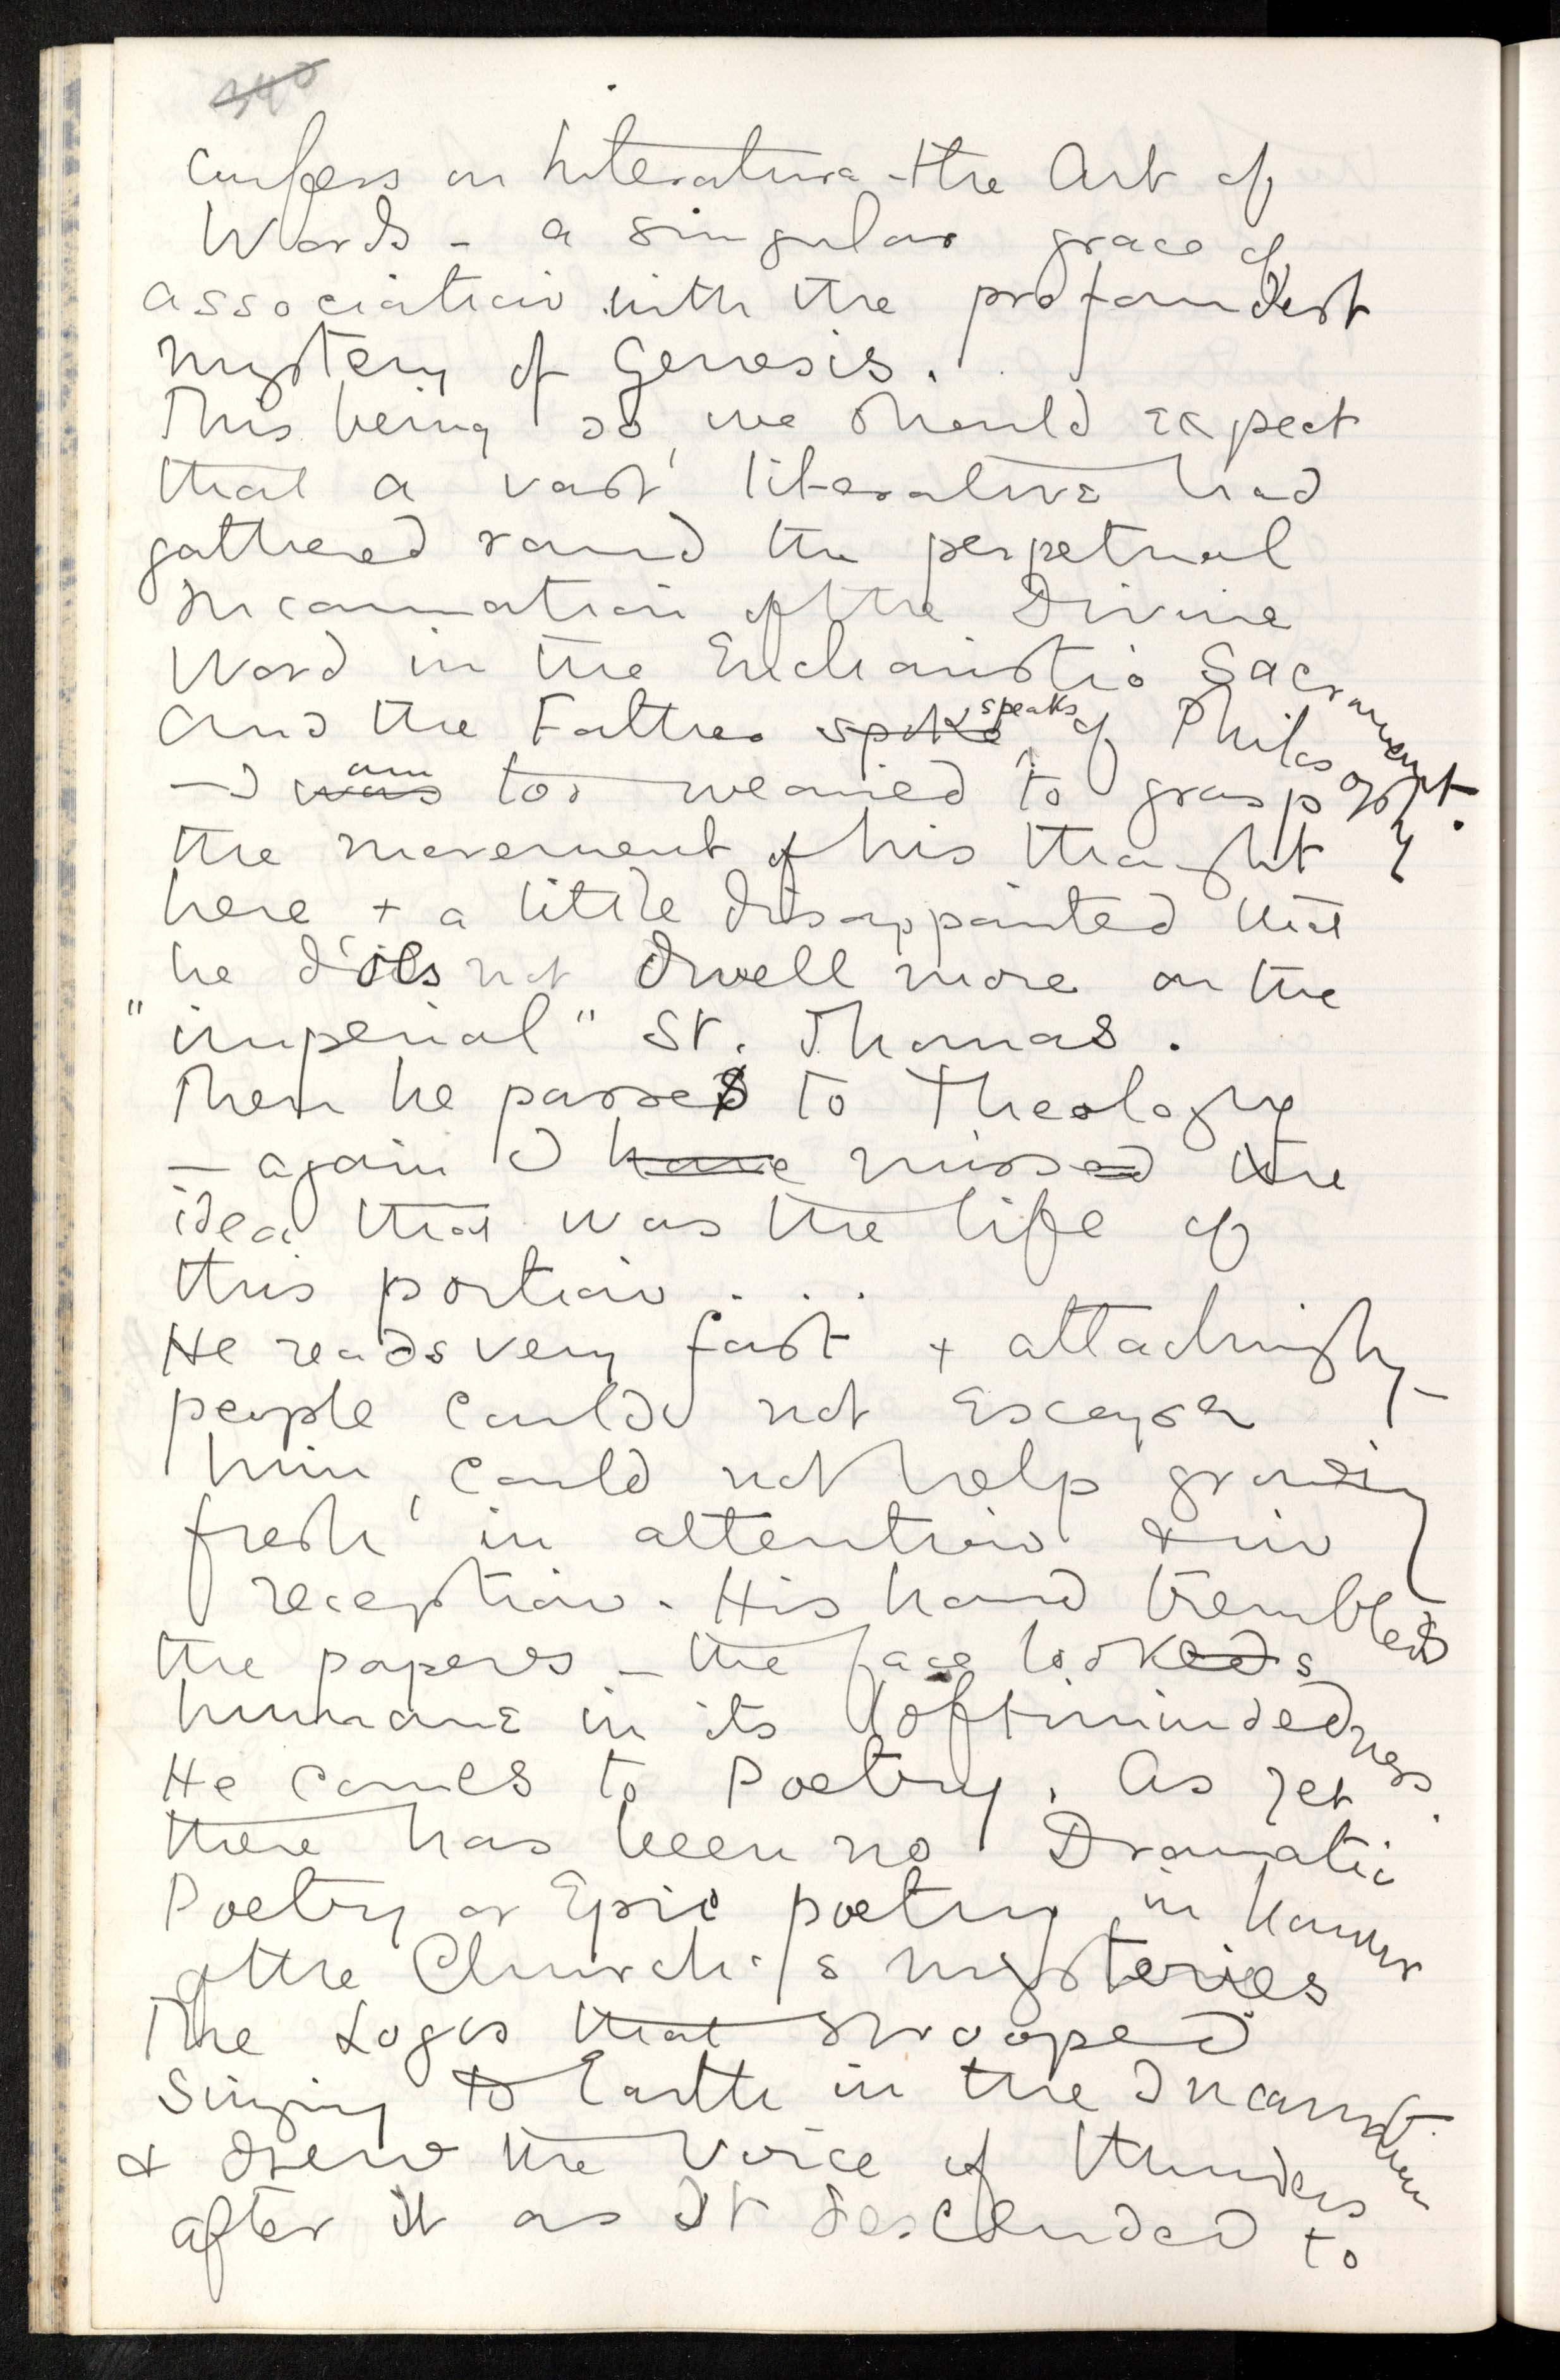 confers on Literature - the Art of
Words - a singular grace of
association with the profoundest
mystery of Genesis.
This being so, we should expect
that a vast literature had
gathered round the perpetual
Incarnation of the Divine
Word in the Eucharistic Sacrament.
And the Father spoke speaks of Philosophy
- I was am too wearied to grasp
the movement of his thought
here + a little disappointed that
he does not dwell more on the
"imperial" St. Thomas.
Then he passes to Theology
- again I have missed the
idea that was the life of
this portion . . .
He reads very fast + attachingly -
people could not escape
him, could not help growing
fresh in attention & in
reception. His hand trembles
the papers - the face looked s
humane in its loftimindedness.
He comes to Poetry. As yet
there has been no Dramatic
Poetry or Epic poetry in honour
of the Church's mysteries
The Logos that swooped
Singing to Earth in the Incarnation
& drew the Voice of thunders
after it as It descended to